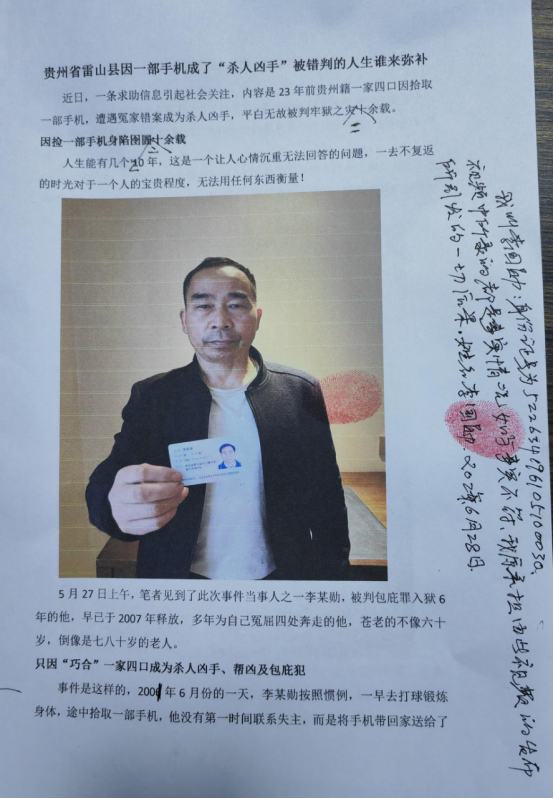 贵州省雷山县因一部手机成了“杀人凶手”被错判的人生谁来弥补
近日，一条求助信息引起社会关注，内容是 23 年前贵州籍一家四口因拾取
一部手机，遭遇冤家错案成为杀人凶手，平白无故被判牢狱之灾十余载。
二
因捡一部手机身陷囹圄十余载
二
人生能有几个 10 年，这是一个让人心情沉重无法回答的问题，一去不复返
的时光对于一个人的宝贵程度，无法用任何东西衡量！
5 月 27 日上午，笔者见到了此次事件当事人之一李某勋，被判包庇罪入狱 6
年的他，早已于 2007 年释放，多年为自己冤屈四处奔走的他，苍老的不像六十
岁，倒像是七八十岁的老人。
只因“巧合”一家四口成为杀人凶手、帮凶及包庇犯
事件是这样的，2001 年 6 月份的一天，李某勋按照惯例，一早去打球锻炼
身体，途中拾取一部手机，他没有第一时间联系失主，而是将手机带回家送给了
我叫李国勋，身份证号为
视频中所录的都是事实情况如与事实不符，我愿承担由此视频的发布
所引发的一切后果，姓名李国勋 6月28日